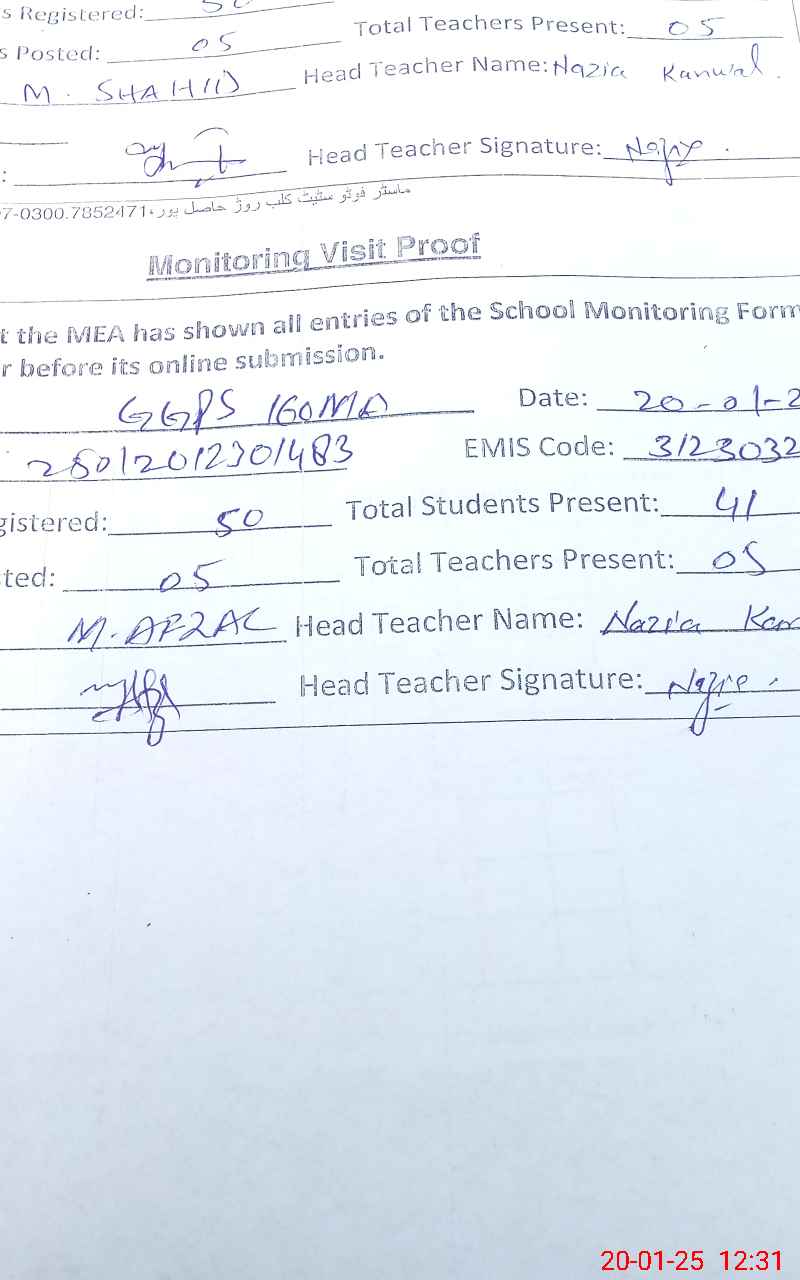 s Registered: 50
Total Teachers Present: 05
s Posted: 05
Head Teacher Name: Nazia Kanwal.
M. SHAHID
: Head Teacher Signature:
7-0300.7852471، ماسٹر فوٹو سٹیٹ کلب روڑ حاصل پور
Monitoring Visit Proof
t the MEA has shown all entries of the School Monitoring Form
r before its online submission.
GGPS 160MA Date: 20-01-2
25012012301483 EMIS Code: 3123032
gistered: 50 Total Students Present: 41
ted: 05 Total Teachers Present: 05
M. AFZAL Head Teacher Name: Nazia Kan
Head Teacher Signature:
20-01-25 12:31